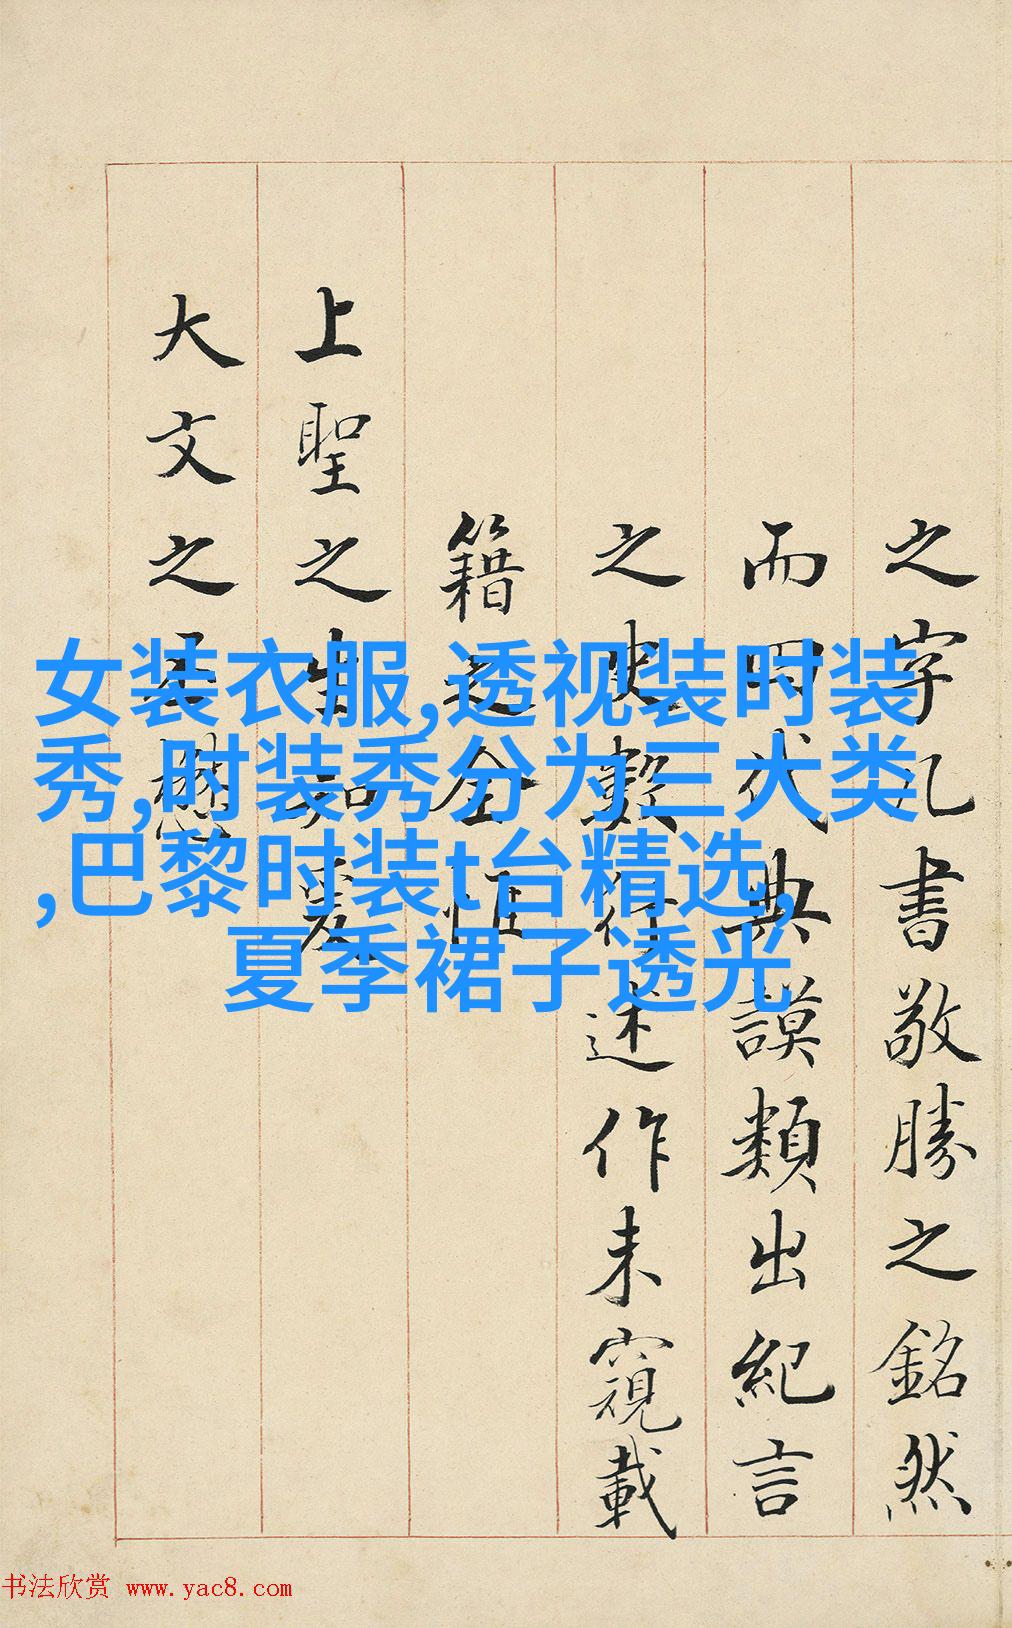 之字几書敬勝之銘然
而四代典謨類出紀言
之史數行述作未窺載
籍之全恒
上聖之生知
大文之
女装衣服,透视装时装
秀,时装秀分为三大类
,巴黎时装t台精选,
夏季裙子透光
书法欣赏 www.yac8.com